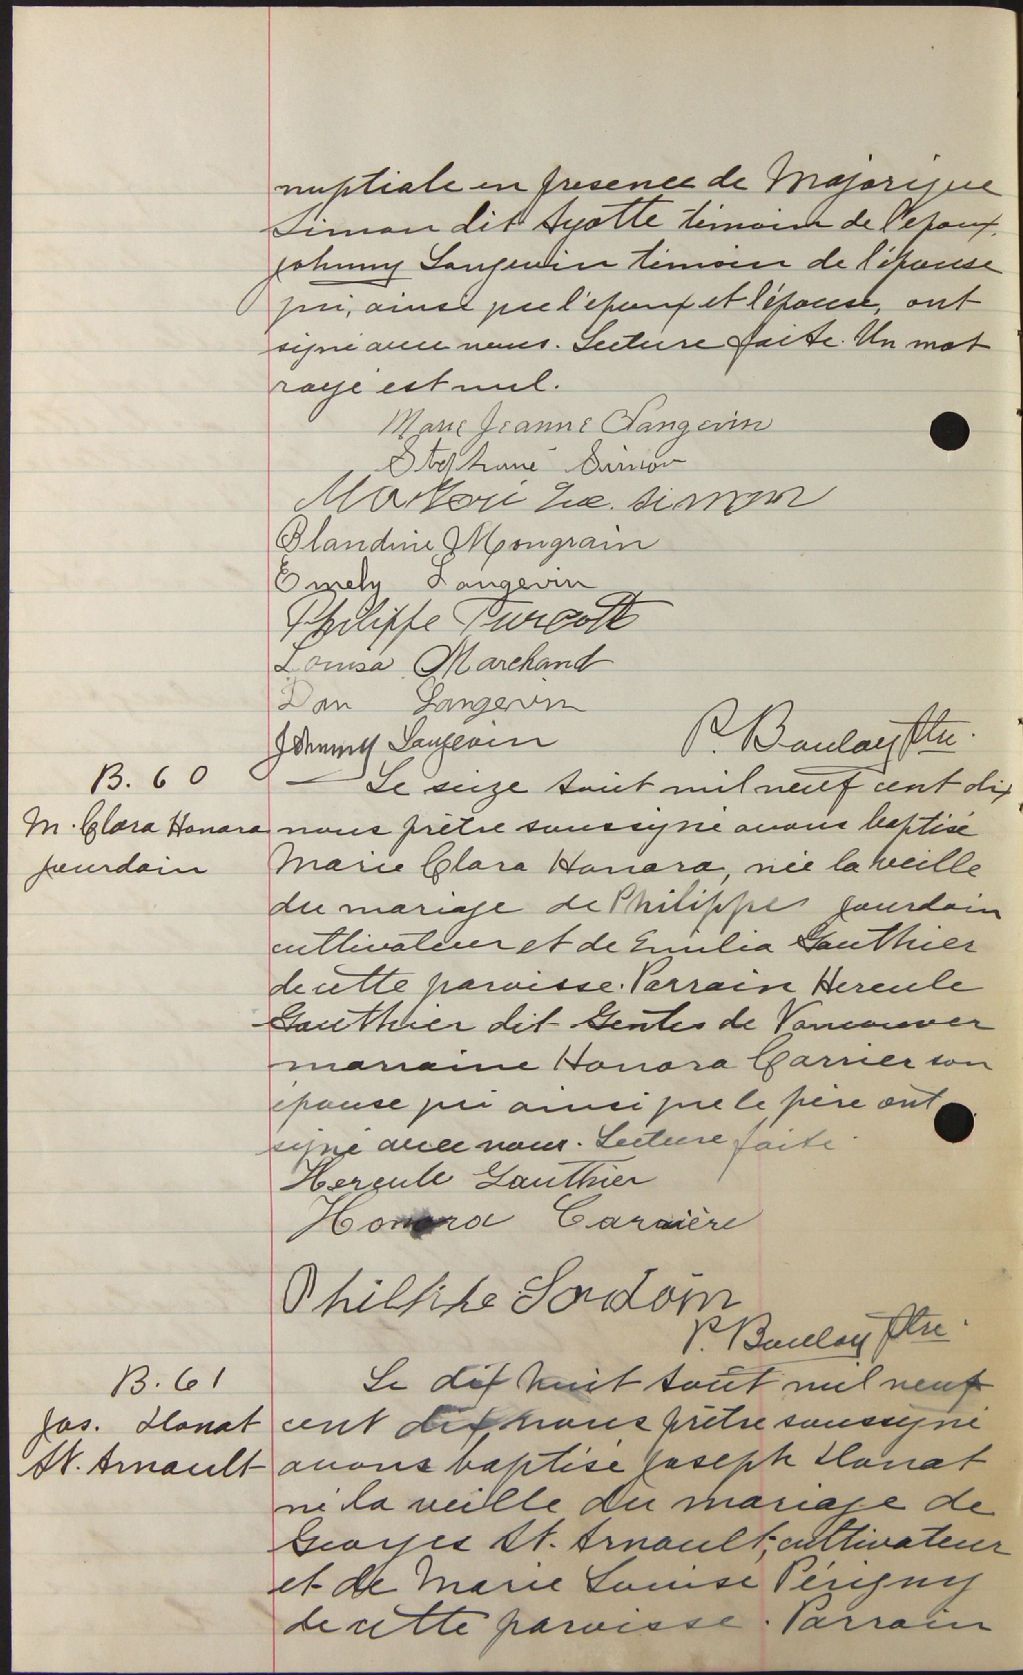 nuptiale en presence de Majorique
Simon dit Ayotte témoin de l'epoux,
Johnny Langevin témoin de l'épouse
qui, ainsi que l'époux et l'épouse, ont
signé avec nous. Lecture faite. Un mot
rayé est nul.
Marie Jeanne Langevin
Stéphane Simon
Simon
Blandine Mongrain
Emely Langevin
Philippe Turcott
Louisa Marchand
Dan Langevin
Johnny Langevin P. Boulay Ptre.
B. 60 Le seize août mil neuf cent dix
M. Clara Honora nous prêtre soussigné avons baptisé
Jourdain Marie Clara Honora, née la veille
du mariage de Philippe Jourdain
cultivateur et de Emilia Gauthier
de cette paroisse. Parrain Hercule
Gauthier dit Gentes de Vancouver
marraine Honora Carrier son
épouse qui ainsi que le père ont
signé avec nous. Lecture faite.
Hercule Gauthier
Honora Carrière
Philippe Jordoin
P. Boulay Ptre.
B. 61 Le dix huit août mil neuf
Jos. Donat cent dix, nous prêtre soussigné
St. Arnault avons baptisé Joseph Donat
né la veille du mariage de
Georges St. Arnault, cultivateur
et de Marie Louise Périgny
de cette paroisse. Parrain